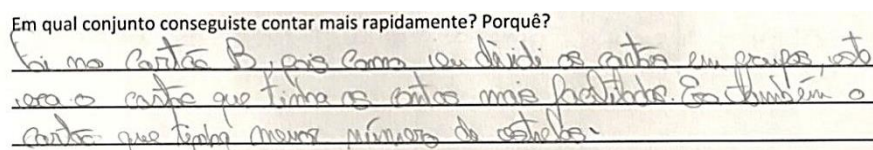 Em qual conjunto conseguiste contar mais rapidamente? Porquê?
Foi no Cartão B, pois como eu dividi os cartões em grupos, este
era o cartão que tinha as contas mais facilitadas. Era também o
cartão que tinha menor número de estrelas.